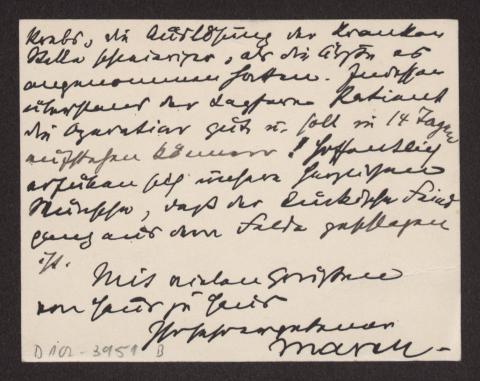 Krebs, die Auslösung der kranken
Stelle schwieriger, als die Ärzte es
angenommen hatten. Indessen
überstand der tapfere Patient
die Operation gut u. soll in 14 Tagen
aufstehen können! Hoffentlich
erfüllen sich unsere herzlichen
Wünsche, daß der tückische Feind
ganz aus dem Felde geschlagen
ist.
Mit vielen Grüßen
von Haus zu Haus
Ihr sehr ergebener
D 102-3951 B